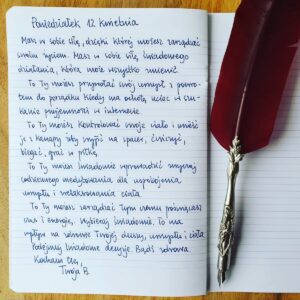 Poniedziałek 12 kwietnia
Masz w sobie siłę, dzięki której możesz zarządzać
swoim życiem. Masz w sobie siłę świadomego
działania, która może wszystko zmienić.
To Ty możesz przywołać swój umysł z powro-
tem do porządku kiedy ma ochotę uciec w szu-
kanie przyjemności w internecie.
To Ty możesz kontrolować swoje ciało i unieść
je z kanapy żeby wyjść na spacer, ćwiczyć,
biegać, grać w piłkę.
To Ty możesz świadomie wprowadzić
codziennego medytowania dla uspokojenia
umysłu i zrelaksowania ciała.
To Ty możesz zarządzać Tym czemu poświęcasz
czas i energię, wybieraj świadomie. To ma
wpływ na zdrowie Twojej duszy, umysłu i ciała.
Podejmuj świadome decyzje. Bądź zdrowa.
Kocham Cię,
Twoja B.